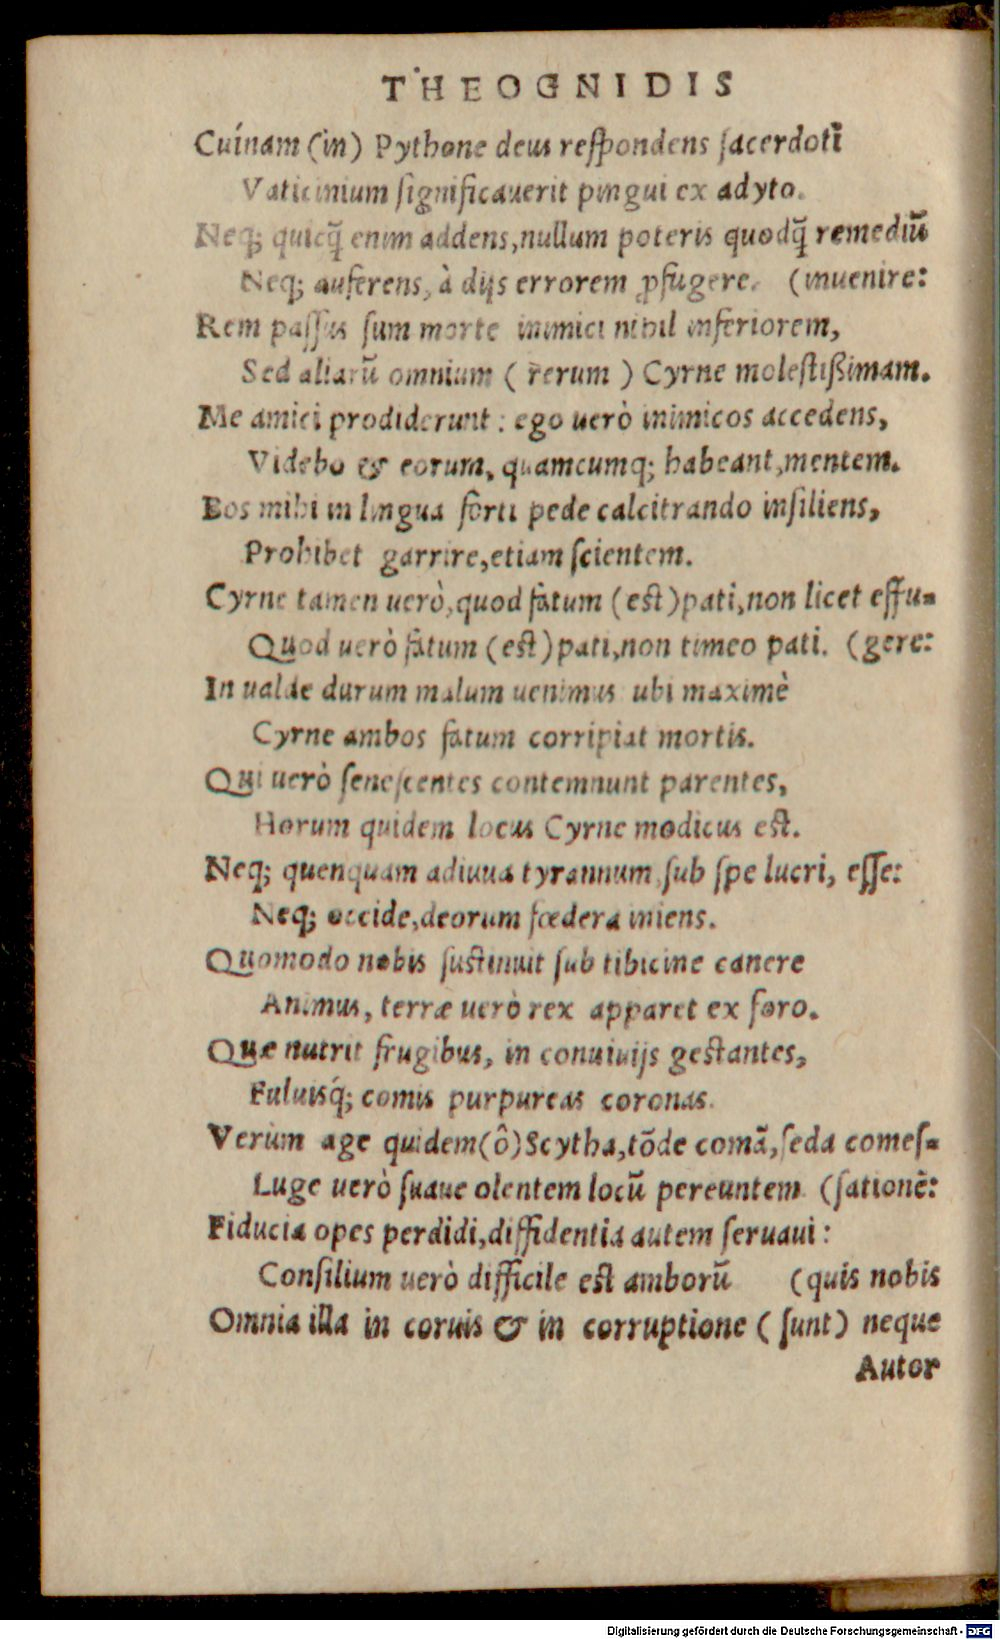 THEOGNIDIS
Cuínam (in) Pythone deus respondens sacerdoti
Vaticinium significauerit pingui ex adyto.
Neq; quicq̃ enim addens, nullum poteris quodq̃ remediũ
Neq; auferens, à dijs errorem ꝓfugere. (inuenire:
Rem passus sum morte inimici nihil inferiorem,
Sed aliarũ omnium ( rerum ) Cyrne molestißimam.
Me amici prodiderunt : ego uerò inimicos accedens,
Videbo & eorum, quamcumq; habeant, mentem.
Bos mihi in lingua forti pede calcitrando insiliens,
Prohibet garrire, etiam scientem.
Cyrne tamen uerò, quod fatum (est) pati, non licet effu-
Quod uerò fatum (est) pati, non timeo pati. (gere:
In ualde durum malum uenimus ubi maximè
Cyrne ambos fatum corripiat mortis.
Qui uerò senescentes contemnunt parentes,
Horum quidem locus Cyrne modicus est.
Neq; quenquam adiuua tyrannum sub spe lucri, esse:
Neq; occide, deorum fœdera iniens.
Quomodo nobis sustinuit sub tibicine canere
Animus, terræ uerò rex apparet ex foro.
Quæ nutrit frugibus, in conuiuijs gestantes,
Fuluisq́; comis purpureas coronas.
Verùm age quidem (ô) Scytha, tõde comã, seda comes-
Luge uerò suaue olentem locũ pereuntem (sationẽ:
Fiducia opes perdidi, diffidentia autem seruaui :
Consilium uerò difficile est amborũ (quis nobis
Omnia illa in coruis & in corruptione ( sunt ) neque
Autor
Digitalisierung gefördert durch die Deutsche Forschungsgemeinschaft - DFG